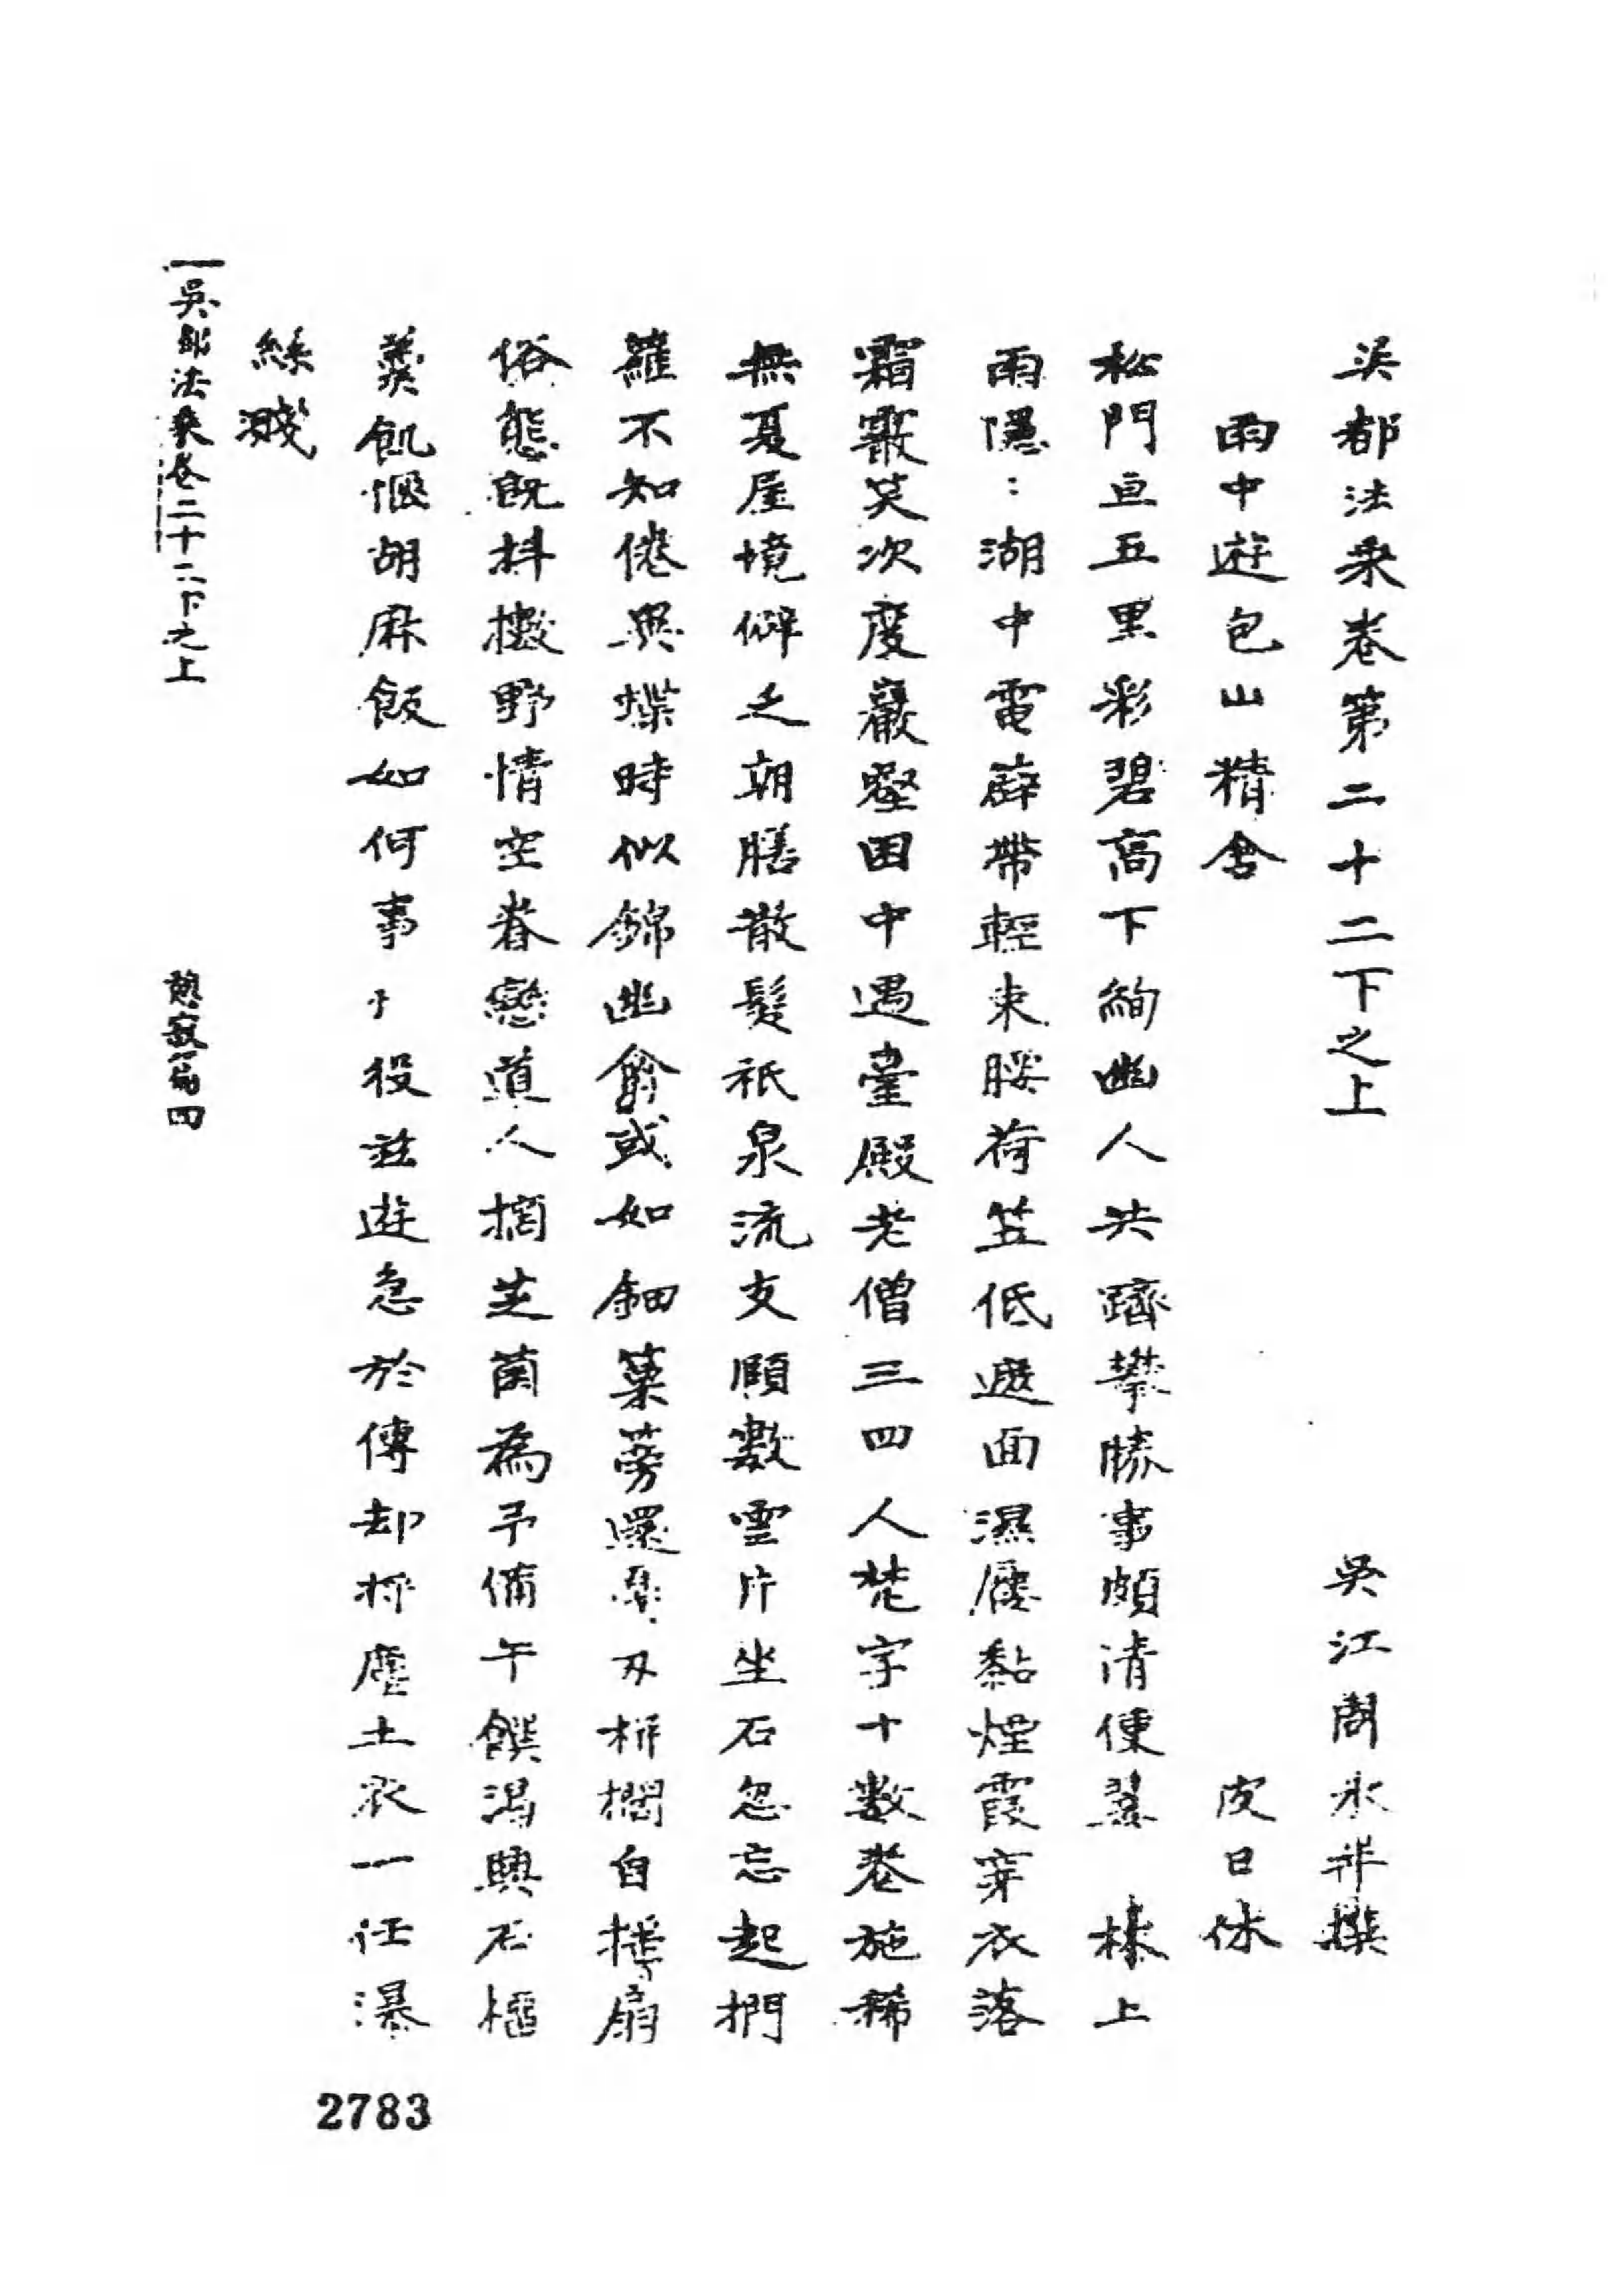 吳都法乘卷第二十二下之上
吳江周永年撰
雨中遊包山精舍
皮日休
松門亘五里彩碧高下絢幽人共躋攀勝事頗清便翼 林上
雨隱：湖中電薜帶輕束腰荷笠低遮面濕屨黏煙霞穿衣落
霜霰笑次度巖壑困中遇臺殿老僧三四人梵字十數卷施稀
無夏屋境僻乏朝膳散髮抵泉流支頤數雲片坐石忽忘起捫
蘿不知倦異蝶時似錦幽禽或如鈿篥簩還 刃栟櫚自搖扇
俗態既抖擻野情空眷戀道人摘芝菌為予備午饌渴興石榴
羹飢愜胡麻飯如何事于役茲遊急於傳却將塵土衣一任瀑
絲濺
吳都法乘卷二十二下之上
憩寂篇四
2783